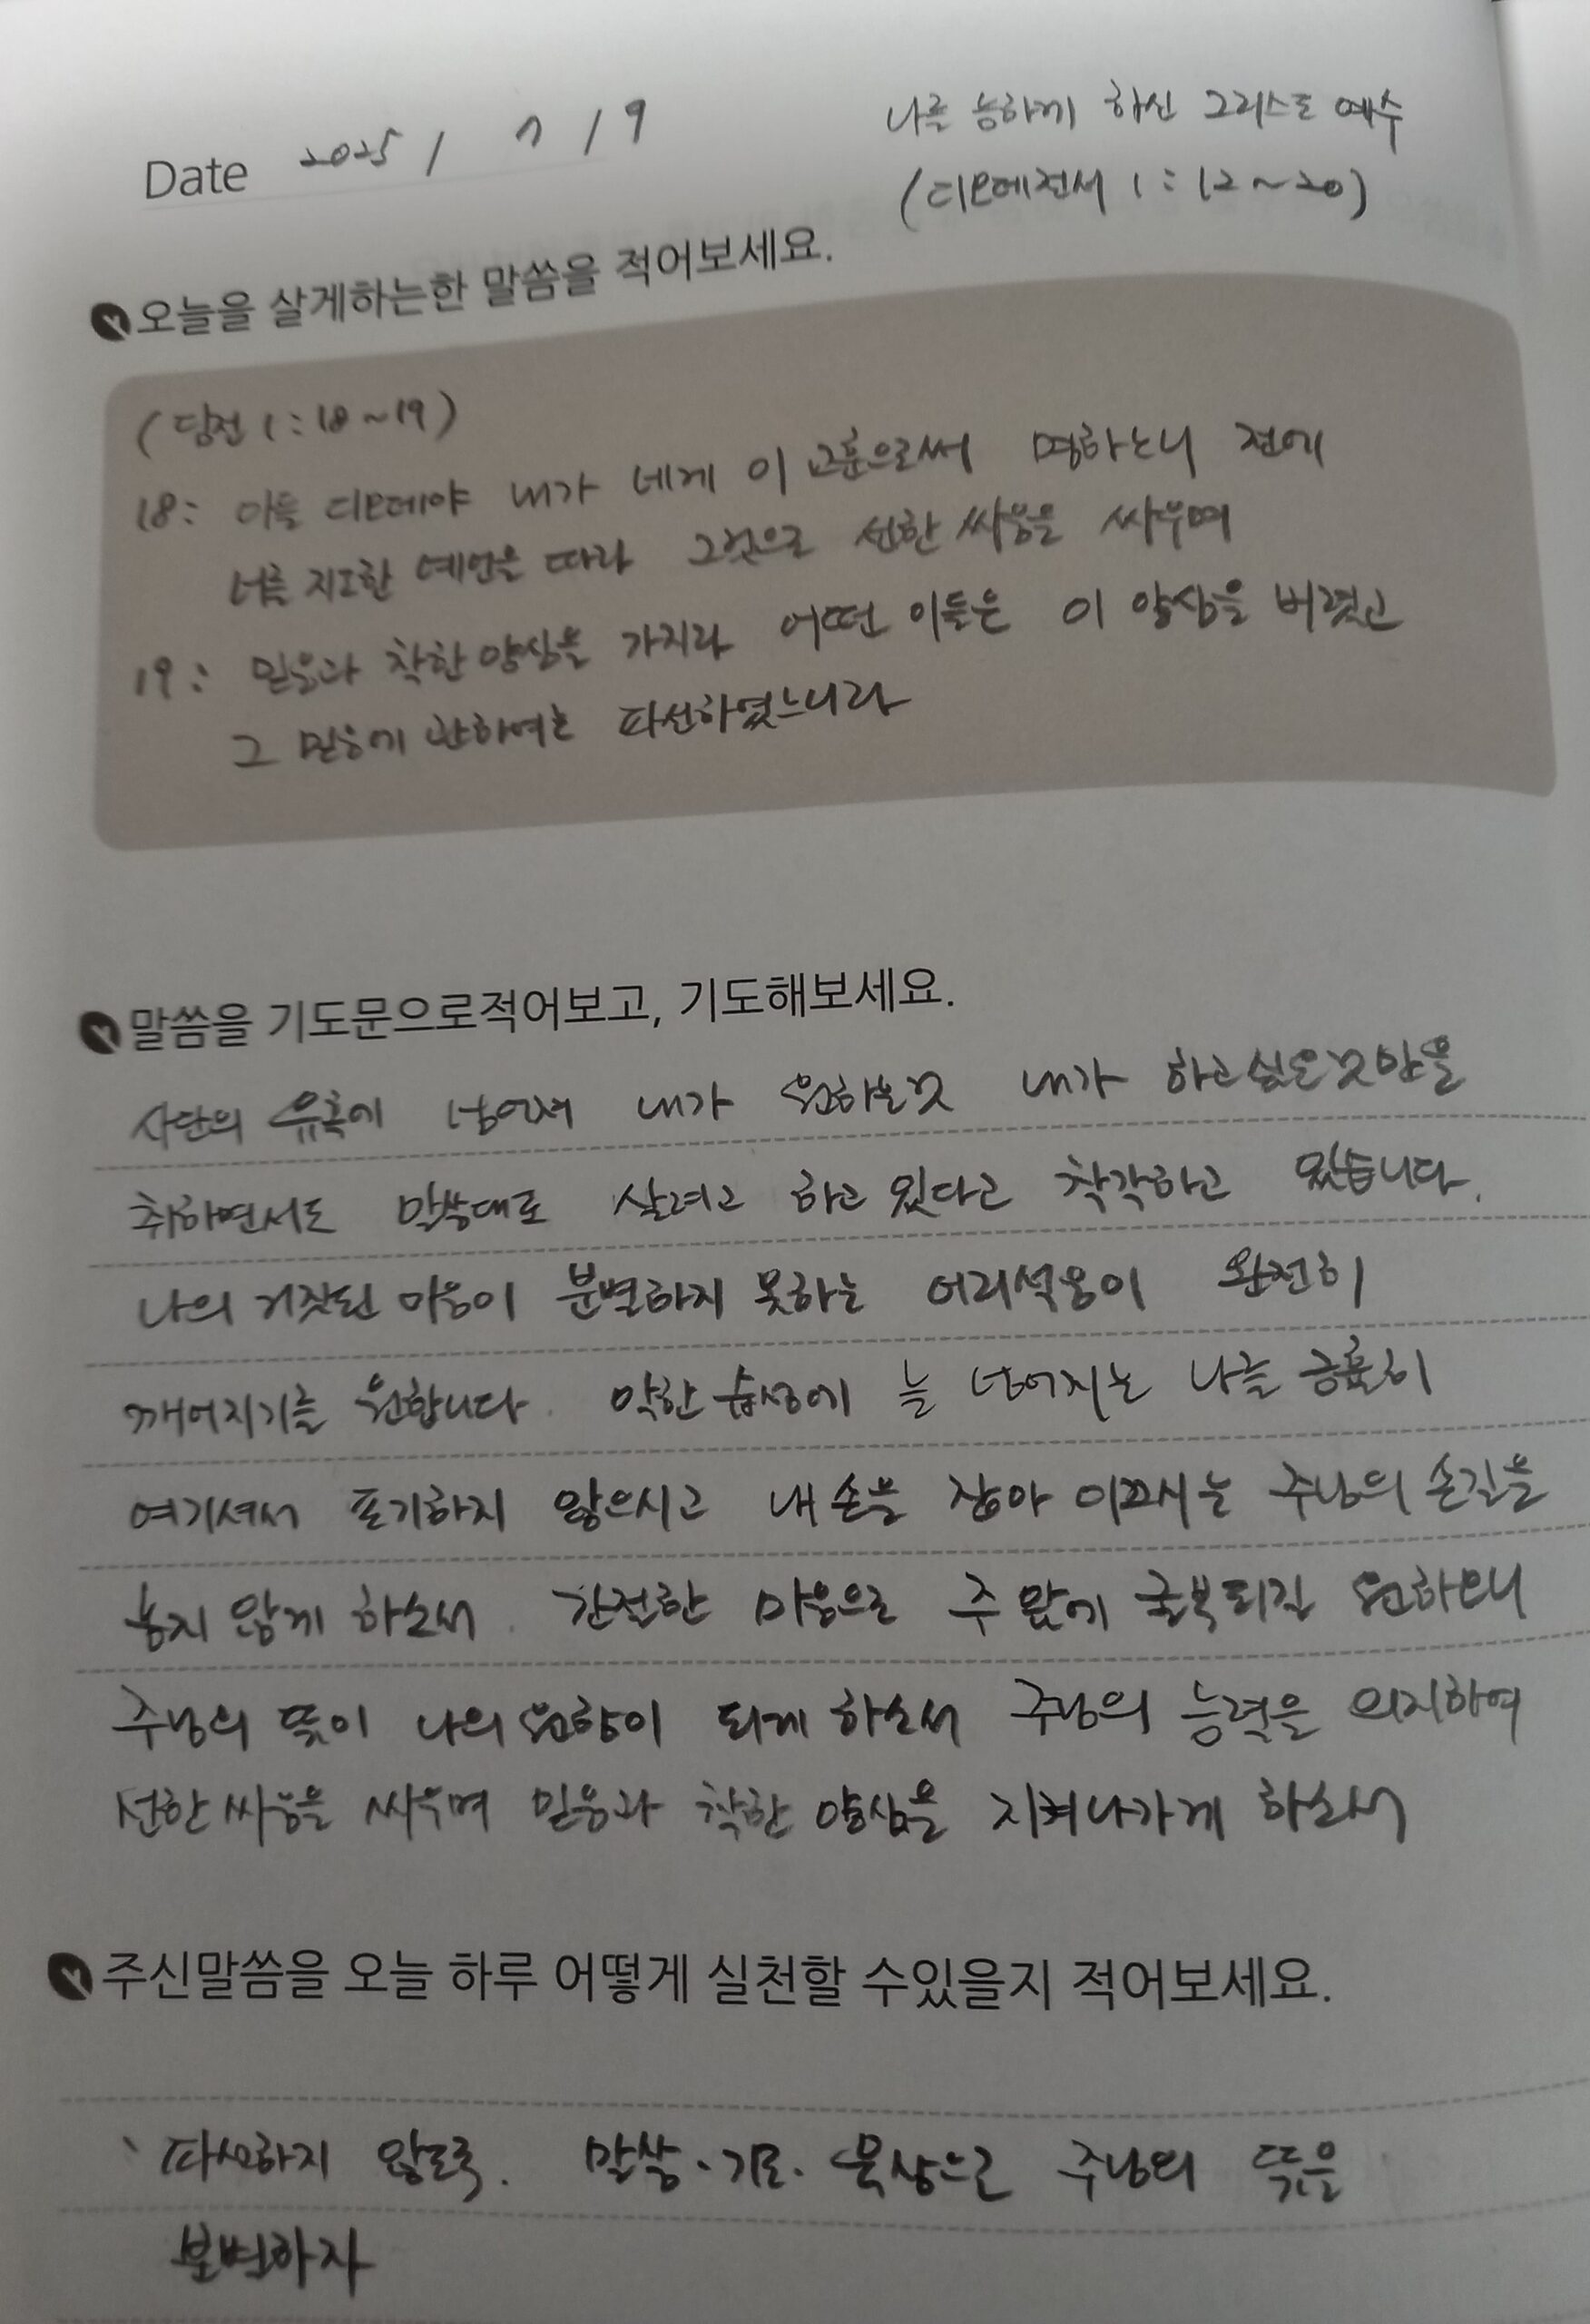 Date 2025 / 7 / 9
나를 능하게 하신 그리스도 예수
(디모데전서 1 : 12 ~ 20)
오늘을 살게하는한 말씀을 적어보세요.
(딤전 1 : 18 ~ 19)
18 : 아들 디모데야 내가 네게 이 교훈으로써 명하노니 전에
너를 지도한 예언을 따라 그것으로 선한 싸움을 싸우며
19 : 믿음과 착한 양심을 가지라 어떤 이들은 이 양심을 버렸고
그 믿음에 관하여는 파선하였느니라
말씀을 기도문으로적어보고, 기도해보세요.
사단의 유혹에 넘어져 내가 원하는것 내가 하고싶은것만을
취하면서도 말씀대로 살려고 하고 있다고 착각하고 있습니다.
나의 거짓된 마음이 분별하지 못하는 어리석음이 완전히
깨어지기를 원합니다. 악한 습성에 늘 넘어지는 나를 긍휼히
여기셔서 포기하지 않으시고 내 손을 잡아 이끄시는 주님의 손길을
놓지 않게 하소서. 간절한 마음으로 주 앞에 굴복되길 원하오니
주님의 뜻이 나의 원함이 되게 하소서 주님의 능력을 의지하여
선한 싸움을 싸우며 믿음과 착한 양심을 지켜나가게 하소서
주신말씀을 오늘 하루 어떻게 실천할 수있을지 적어보세요.
파선하지 않도록. 말씀 · 기도 · 묵상으로 주님의 뜻을
분별하자